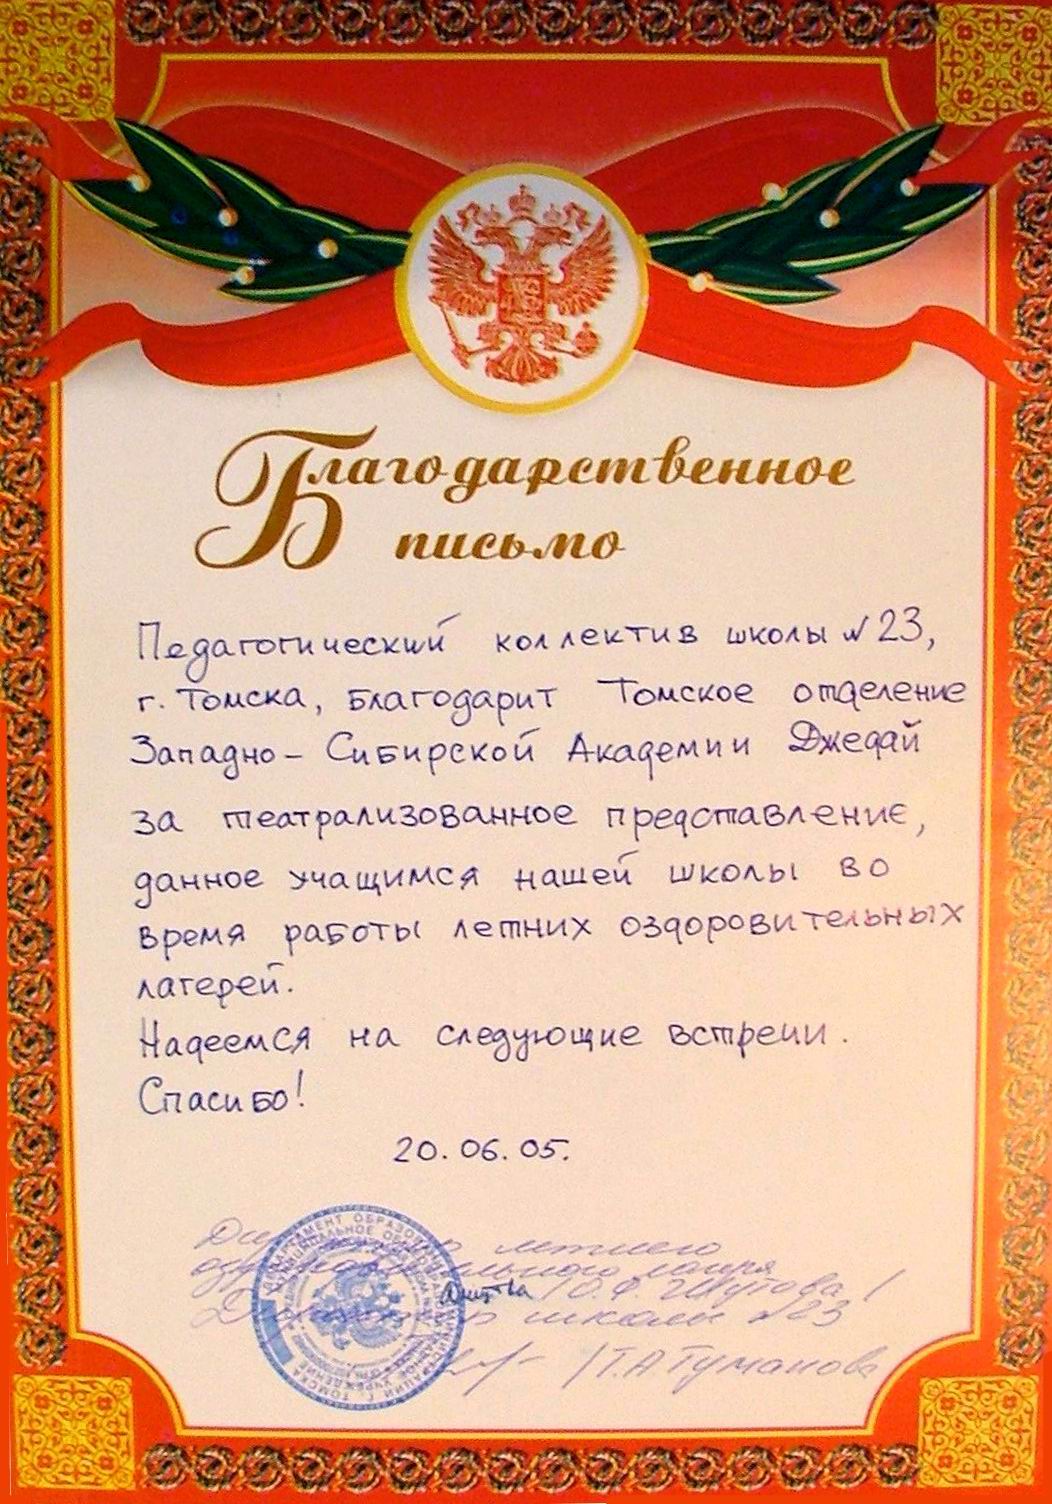 Благодарственное
письмо
Педагогический коллектив школы №23,
г. Томска, благодарит Томское отделение
Западно-Сибирской Академии Джедай
за театрализованное представление,
данное учащимся нашей школы во
время работы летних оздоровительных
лагерей.
Надеемся на следующие встречи.
Спасибо!
20.06.05.
летнего
лагеря
/Ю.Ф. Шутова/
школы №23
/Т.А Туманова
ДЕПАРТАМЕНТ ОБРАЗОВАНИЯ АДМИНИСТРАЦИИ Г. ТОМСКА